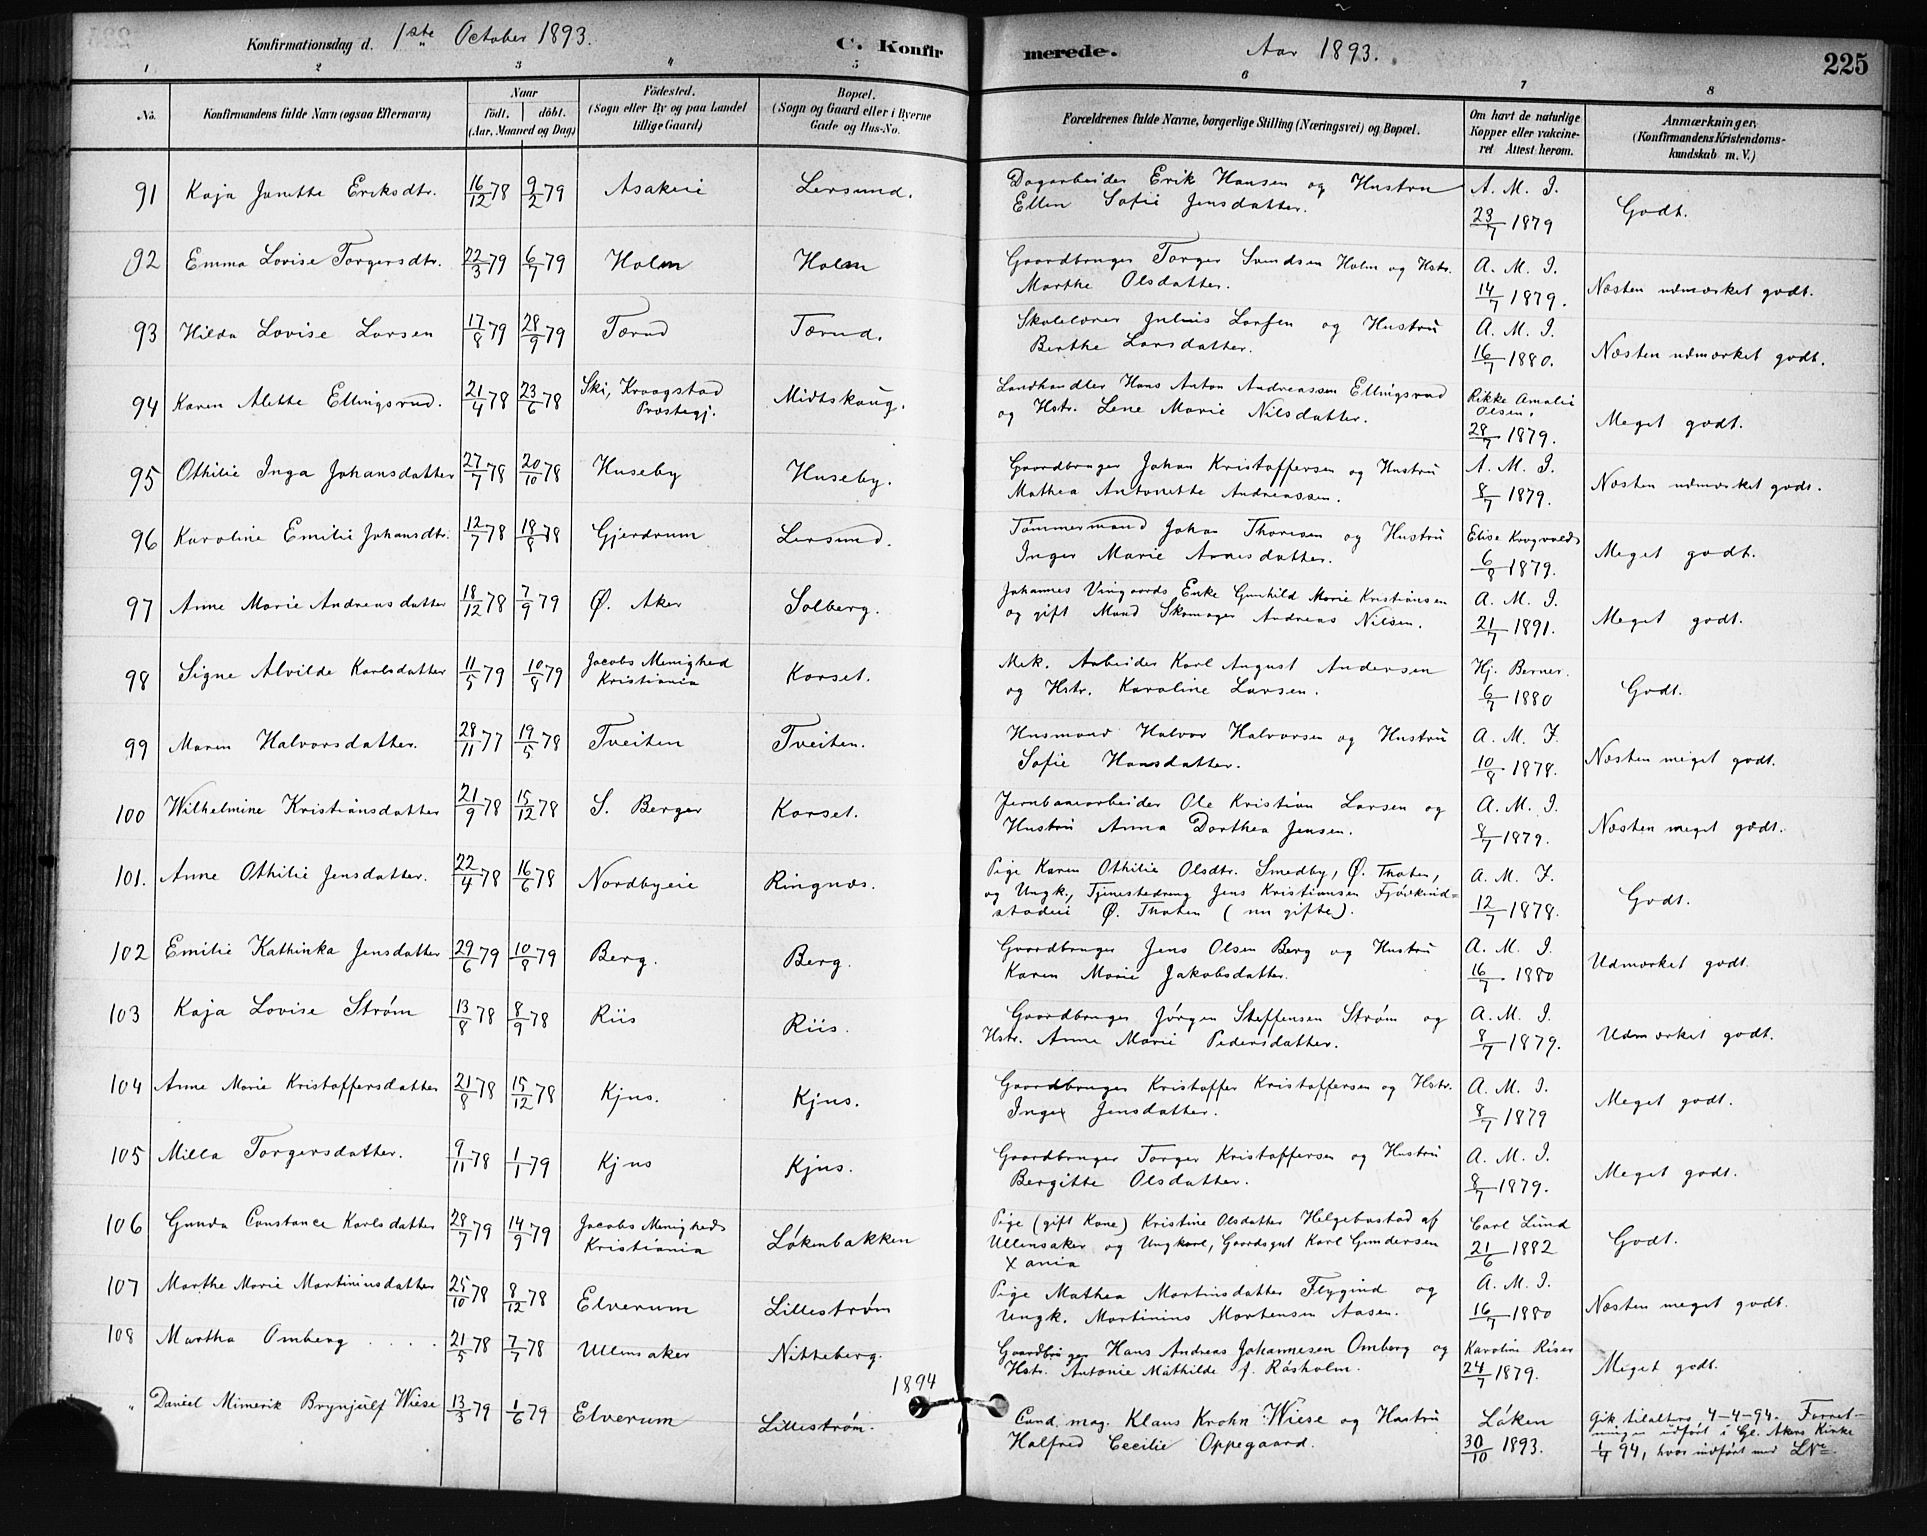 Konfirmationsdag d. 1ste October 1893.
C. Konfirmerede.
Aar 1893.
225
1 2 3 4 5 6 7 8
No.
Konfirmandens fulde Navn (ogsaa Efternavn)
Naar
født. døbt.
(Aar, Maaned og Dag)
Fødested.
(Sogn eller By og paa Landet
tillige Gaard)
Bopæl.
(Sogn og Gaard eller i Byerne
Gade og Hus-No.
Forældrenes fulde Navne, borgerlige Stilling (Næringsvei) og Bopæl.
Om havt de naturlige
Kopper eller vakcine-
ret Attest herom.
Anmærkninger.
(Konfirmandens Kristendoms-
kundskab m. V.)
91 Kaja Janette Eriksdtr. 16/12 78 9/2 79 Asakeie Lersund. Dagarbeider Erik Hansen og Hustru
Ellen Sofie Jensdatter. A. M. I. 23/7 1879 Godt.
92 Emma Lovise Torgersdtr. 22/3 79 6/7 79 Holm Holm Gaardbruger Torger Svendsen Holm og Hstr.
Marthe Olsdatter. A. M. I. 14/7 1879. Næsten udmærket godt.
93 Hilda Lovise Larsen 17/8 79 28/9 79 Tærud Tærud. Skolelærer Julius Larsen og Hustru
Berthe Larsdatter. A. M. I. 16/7 1880. Næsten udmærket godt.
94 Karen Alette Ellingsrud. 21/4 78 23/6 78 Ski, Kraagstad
Præstegj. Midtskaug. Landhandler Hans Anton Andreassen Ellingsrud
og Hstr. Lene Marie Nilsdatter. Rikke Amalie
Olsen. 28/7 1879. Meget godt.
95 Othilie Inga Johansdatter 27/7 78 20/10 78 Huseby Huseby. Gaardbruger Johan Kristoffersen og Hustru
Mathea Antonette Andreassen. A. M. I. 8/7 1879. Næsten udmærket godt.
96 Karoline Emilie Johansdtr. 12/7 78 18/8 78 Gjerdrum Lersund. Tømmermand Johan Thoresen og Hustru
Inger Marie Arnesdatter. Elise 6/8 1879. Meget godt.
97 Anne Marie Andreasdatter 18/12 78 7/9 79 Ø. Aker Solberg. Johannes Vingaards Enke Gunhild Marie Kristiansen
og gift Mand Skomager Andreas Nilsen. A. M. I. 21/7 1891. Meget godt.
98 Signe Alvilde Karlsdatter 11/5 79 10/8 79 Jacobs Menighed
Kristiania Korset. Mek. Arbeider Karl August Andersen
og Hstr. Karoline Larsen. Hj. Berner. 6/7 1880 Godt.
99 Maren Halvorsdatter. 28/11 77 19/5 78 Tveiten Tveiten. Husmand Halvor Halvorsen og Hustru
Sofie Hansdatter. A. M. I. 10/8 1878. Næsten meget godt.
100 Wilhelmine Kristiansdatter 21/9 78 15/12 78 S. Berger Korset. Jernbanearbeider Ole Kristian Larsen og
Hustru Anna Dorthea Jensen. A. M. I. 8/7 1879. Næsten meget godt.
101. Anne Othilie Jensdatter. 22/4 78 16/6 78 Nordbyeie Ringnæs. Pige Karen Othilie Olsdtr. Smedby, Ø. Thoten,
og Ungk., Tjenestedreng Jens Kristiansen
Ø. Thoten (nu gifte). A. M. I. 12/7 1878. Godt.
102 Emilie Kathinka Jensdatter 29/6 79 10/8 79 Berg. Berg. Gaardbruger Jens Olsen Berg og Hustru
Karen Marie Jakobsdatter. A. M. I. 16/7 1880 Udmærket godt.
103 Kaja Lovise Strøm 13/8 78 8/9 78 Riis Riis. Gaardbruger Jørgen Steffensen Strøm og
Hstr. Anne Marie Pedersdatter. A. M. I. 8/7 1879. Udmærket godt.
104 Anne Marie Kristoffersdatter 21/8 78 15/12 78 Kjus. Kjus. Gaardbruger Kristoffer Kristoffersen og Hstr.
Inger Jensdatter. A. M. I. 8/7 1879 Meget godt.
105 Milla Torgersdatter. 9/11 78 1/1 79 Kjus Kjus. Gaardbruger Torger Kristoffersen og Hustru
Bergitte Olsdatter. A. M. I. 8/7 1879. Meget godt.
106 Gunda Constance Karlsdatter 28/7 79 14/9 79 Jacobs Menigheds
Kristiania Løkenbakken Pige (gift Kone) Kristine Olsdatter Helgebostad af
Ullensaker og Ungkarl, Gaardsgut Karl Gundersen
Xania Carl Lund 21/6 1882 Godt.
107 Marthe Marie Martiniusdatter 25/10 78 8/12 78 Elverum Lillestrøm Pige Mathea Martinsdatter Flygind og
Ungk. Martinius Mortensen Aasen. A. M. I. 16/7 1880 Næsten meget godt.
108 Martha Omberg . . . . 21/5 78 7/7 78 Ullensaker Nitteberg. Gaardbruger Hans Andreas Johannesen Omberg og
Hstr. Antonie Mathilde f. Råsholm. Karoline Riser 24/7 1879. Meget godt.
1894
" Daniel Mimerik Brynjulf Wiese 13/3 79 1/6 79 Elverum Lillestrøm. Cand. mag. Klaus Krohn Wiese og Hustru
Halfred Cecilie Oppegaard. Løken 30/10 1893. Gik tilalters 4-4-94. Forret-
ningen udført i Gl. Akers Kirke
1/4 94, hvor indført med LNo